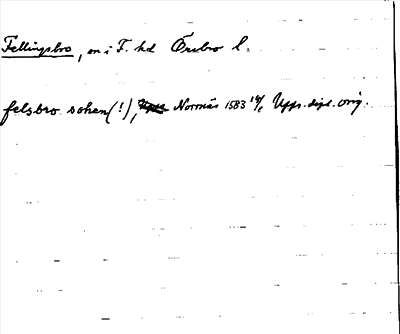 Fellingsbro, sn i F. hd Örebro l.
felsbro soken(!), Norrnäs 1583 14/6 Upps. dipl. orig.